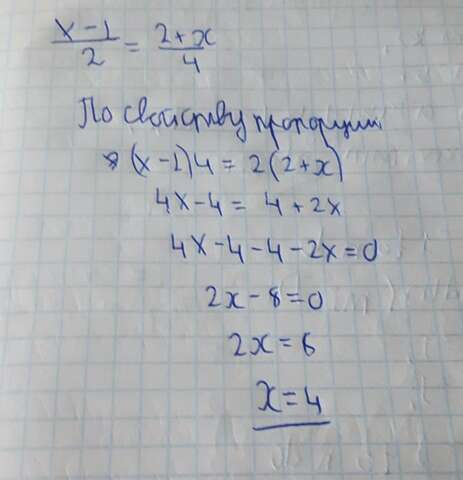 x-1/2 = 2+x/4
По свойству пропорции
(x-1)4 = 2(2+x)
4x-4 = 4+2x
4x-4-4-2x=0
2x-8=0
2x=6
x=4